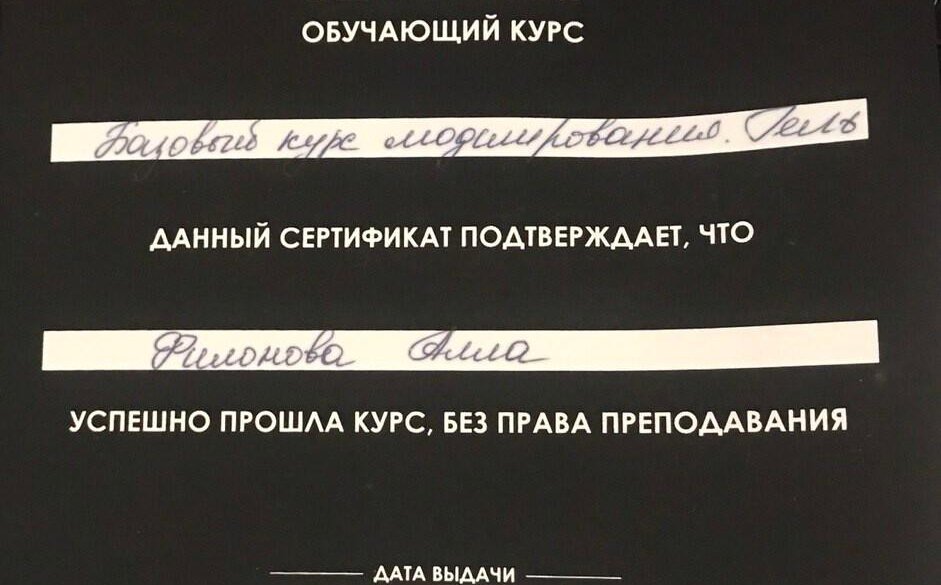 ОБУЧАЮЩИЙ КУРС
Базовый курс моделирования. Гель
ДАННЫЙ СЕРТИФИКАТ ПОДТВЕРЖДАЕТ, ЧТО
Филонова Алла
УСПЕШНО ПРОШЛА КУРС, БЕЗ ПРАВА ПРЕПОДАВАНИЯ
ДАТА ВЫДАЧИ